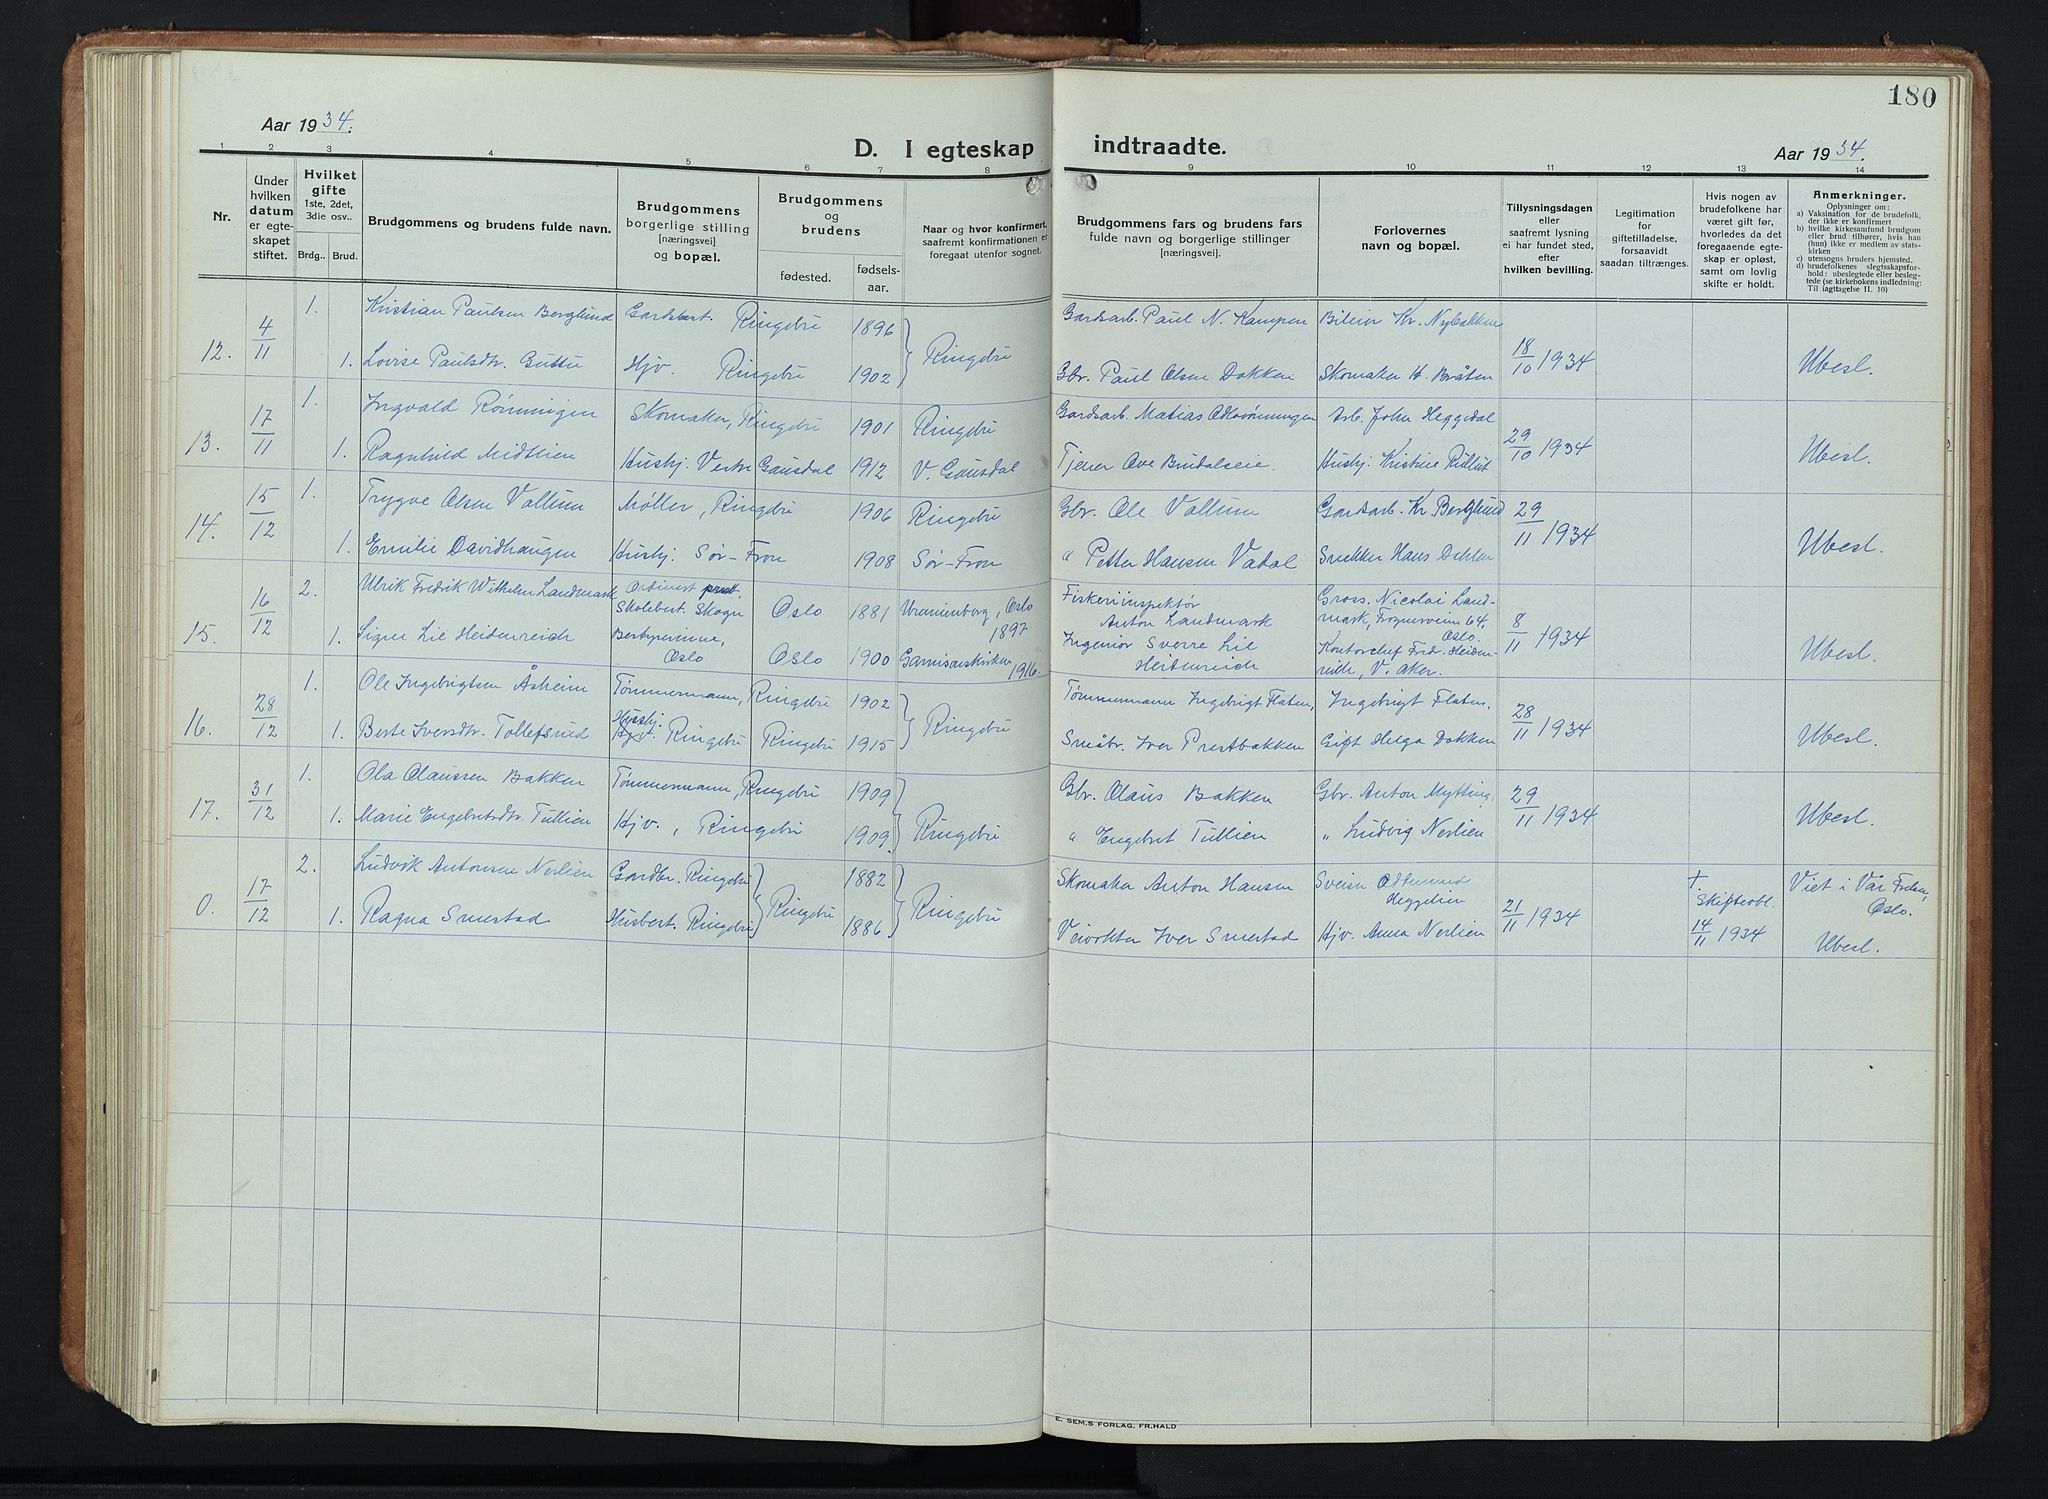 180
Aar 1934.
D. I egteskap indtraadte.
Aar 1934.
1 2 3 4 5 6 7 8 9 10 11 12 13 14
Nr.
Under hvilken datum er egteskapet stiftet.
Hvilket gifte 1ste, 2det, 3die osv..
Brdg.. Brud.
Brudgommens og brudens fulde navn.
Brudgommens borgerlige stilling [næringsvei] og bopæl.
Brudgommens og brudens
fødested. fødselsaar.
Naar og hvor konfirmert, saafremt konfirmationen er foregaat utenfor sognet.
Brudgommens fars og brudens fars fulde navn og borgerlige stillinger [næringsvei].
Forlovernes navn og bopæl.
Tillysningsdagen eller saafremt lysning ei har fundet sted, efter hvilken bevilling.
Legitimation for giftetilladelse, forsaavidt saadan tiltrænges.
Hvis nogen av brudefolkene har været gift før, hvorledes da det foregaaende egteskap er opløst, samt om lovlig skifte er holdt.
Anmerkninger.
Oplysninger om:
a) Vaksination for de brudefolk, der ikke er konfirmert
b) hvilke kirkesamfund brudgom eller brud tilhører, hvis han (hun) ikke er medlem av statskirken
c) utensogns bruders hjemsted.
d) brudefolkenes slegtsskapsforhold: ubeslegtede eller beslegtede (se kirkebokens indledning: Til iagttagelse II. 10)
12. 4/11 1. Kristian Paulsen Berglund Gardsbest. Ringebu 1896 Ringebu Gardsarb. Paul N. Kampen Bileier Kr. Nybakken 18/10 1934 Ubesl.
1. Lovise Paulsdtr. Guttu Hjv. Ringebu 1902 Gbr. Paul Olsen Dokken Skomaker H. Bråten
13. 17/11 1. Ingvald Rønningen Skomaker, Ringebu 1901 Ringebu Gardsarb. Matias Rønningen Arb. John Heggdal 29/10 1934 Ubesl.
1. Ragnhild Midtlien Hushj. Vestre Gausdal 1912 V. Gausdal Tjener Ove Brudalseie. Hushj. Kristine
14. 15/12 1. Trygve Olsen Vollum Møller, Ringebu 1906 Ringebu Gbr. Ole Vollum Gardsarb. Kr. Berglund 29/11 1934 Ubesl.
1. Emilie Davidhaugen Hushj. Sør-Fron 1908 Sør-Fron " Petter Hansen Vadal Snekker Hans Dahlen
15. 16/12 2. Ulrik Fredrik Wilhelm Landmark Ordinert prest, Skolebest. Skogn Oslo 1881 Uranienborg, Oslo 1897 Fiskeriinspektør Anton Landmark Gross. Nicolai Landmark, Frognerveien 64, Oslo. 8/11 1934 Ubesl.
1. Signe Lie Heidenreich Bestyrerinne, Oslo Oslo 1900 Garnisonskirken 1916. Ingeniør Sverre Lie Heidenreich Kontorchef Fredr. Heidenreich, V. Aker.
16. 28/12 1. Ole Ingebrigtsen Åsheim Tømmermann, Ringebu 1902 Ringebu Tømmermann Ingebrigt Flaten, Ingebrigt Flaten. 28/11 1934 Ubesl.
1. Berte Iversdtr. Tollefsrud Hushj. Ringebu Ringebu 1915 Småbr. Iver Prestbakken Gift Helga Dokken
17. 31/12 1. Ola Olaussen Bakken Tømmermann, Ringebu 1909 Ringebu Gbr. Olaus Bakken Gbr. Anton Mytting. 29/11 1934 Ubesl.
1. Marie Engebretsdtr. Tullien Hjv., Ringebu 1909. " Engebret Tullien " Ludvig Nerlien
0. 17/12 2. Ludvik Antonsen Nerlien Gardbr. Ringebu Ringebu 1882 Ringebu Skomaker Anton Hansen Heggelien 21/11 1934 † Skifteobl. 14/11 1934 Viet i Vår Frelser, Oslo. Ubesl.
1. Ragna Smestad Husbest. Ringebu 1886 Veivokter Iver Smestad Hjv. Anna Nerlien
E. SEM,S FORLAG, FR.HALD